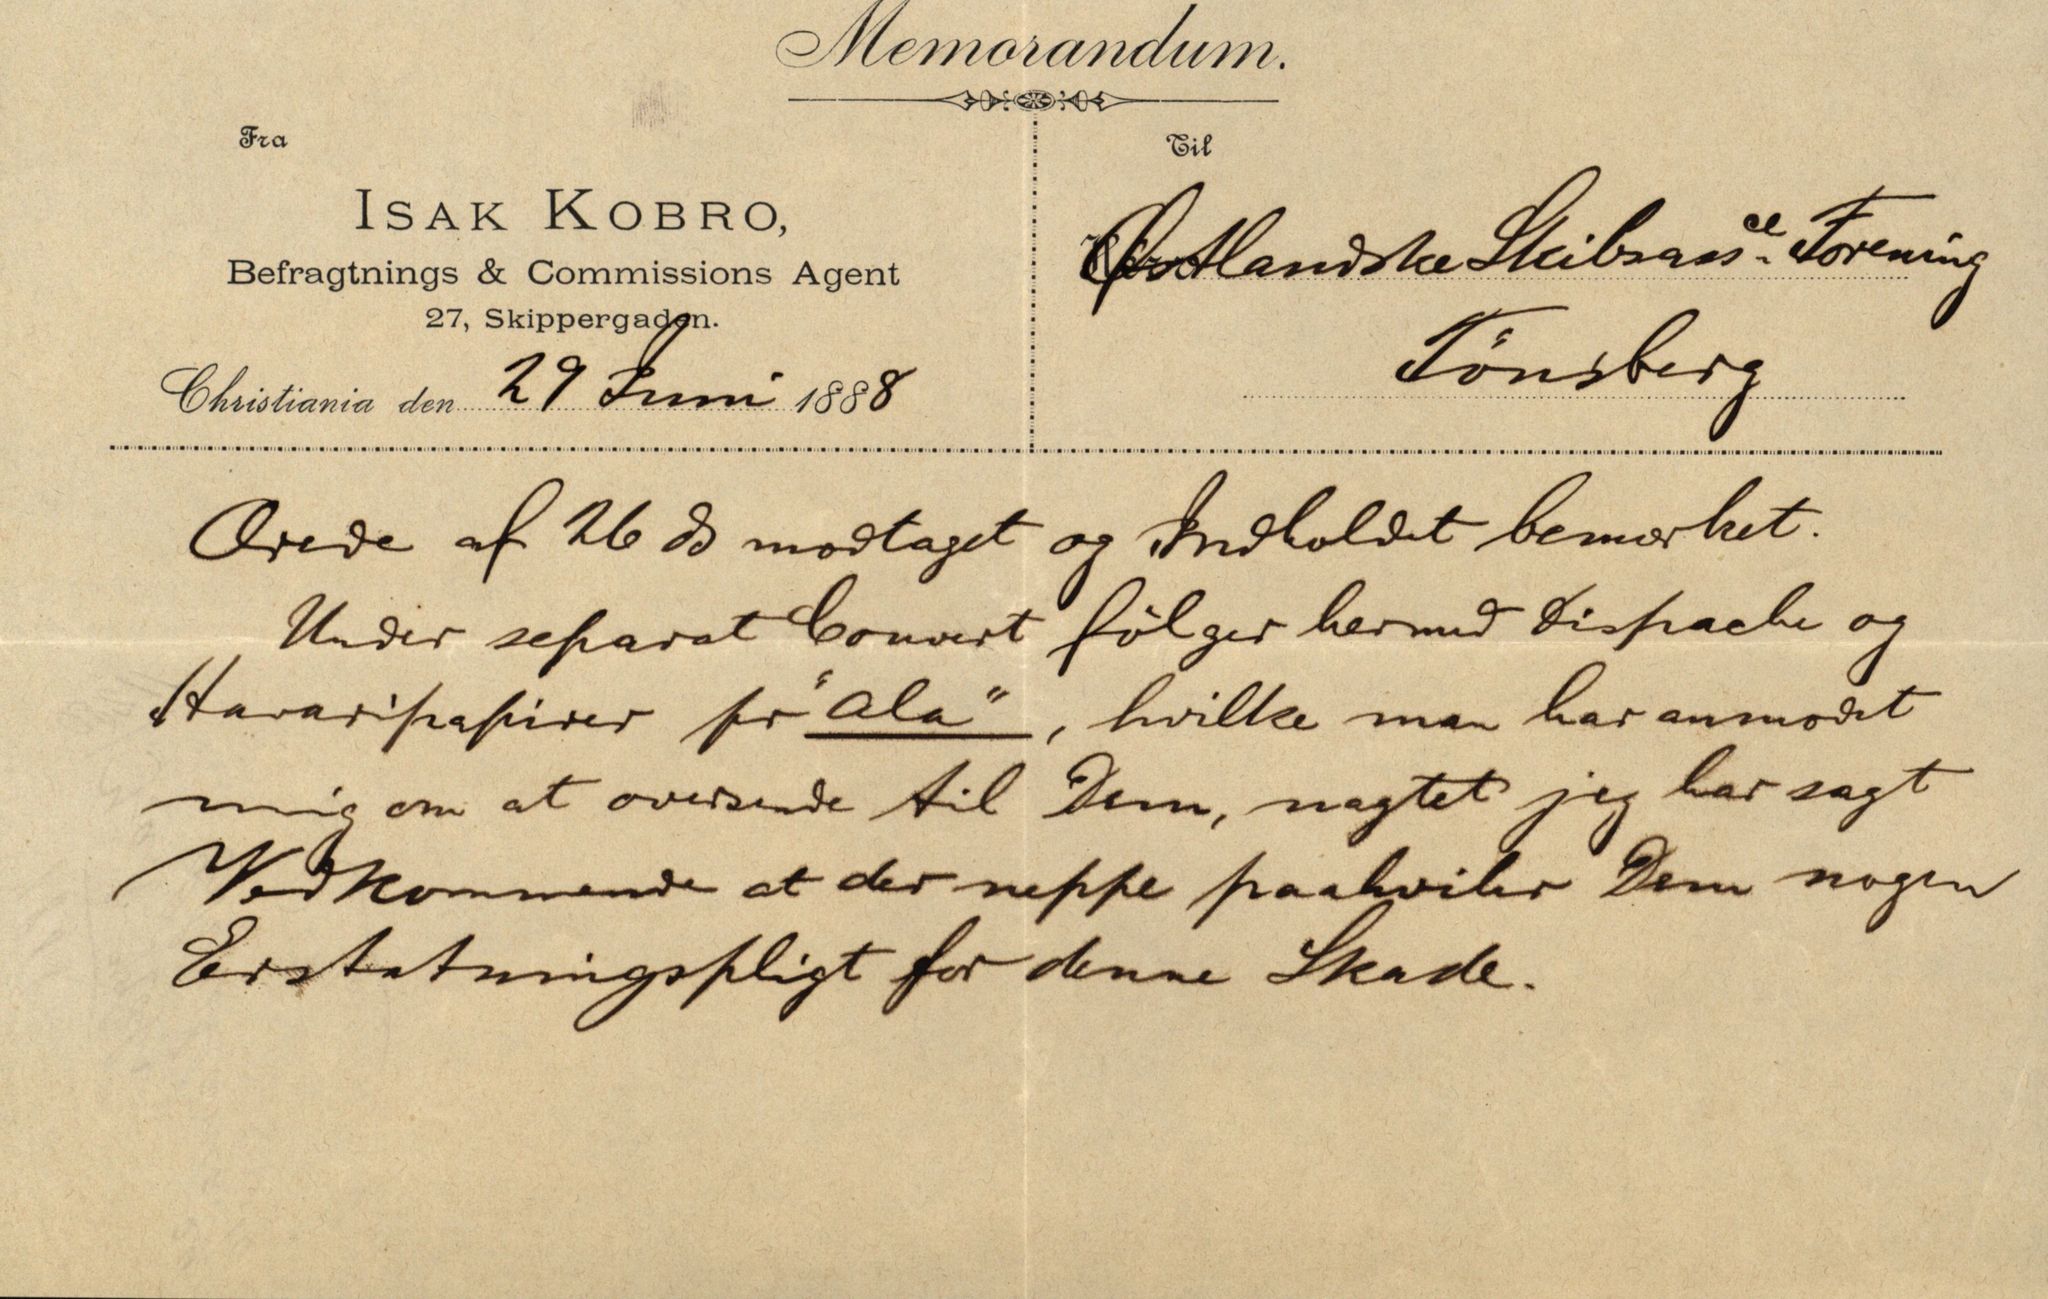 Memorandum.
Fra
Til
ISAK KOBRO,
Befragtnings & Commissions Agent
27, Skippergaden.
Christiania den 29 Juni 1888
Østlandske Skibsass.ce Forening
Tönsberg
Ærede af 26 ds modtaget og Indholdet bemærket.
Under separat Convert fölger hermed Dispache og
Havaripapirer pr "Ala", hvilke man har anmodet
mig om at oversende til Dem, uagtet jeg har sagt
Vedkommende at der neppe paahviler Dem nogen
Erstatningspligt for denne Skade.